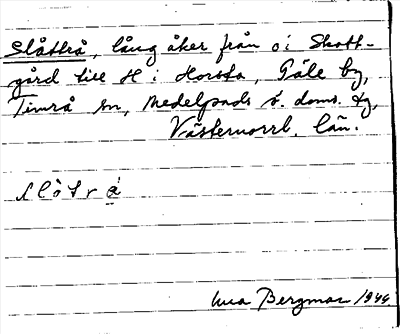 Slåtträ, lång åker från ö i Skott-
gård till H i Horsta, Fäle by,
Timrå sn, Medelpads ö. doms. tg,
Västernorrl. län.
slòträ
Bergman 1944.